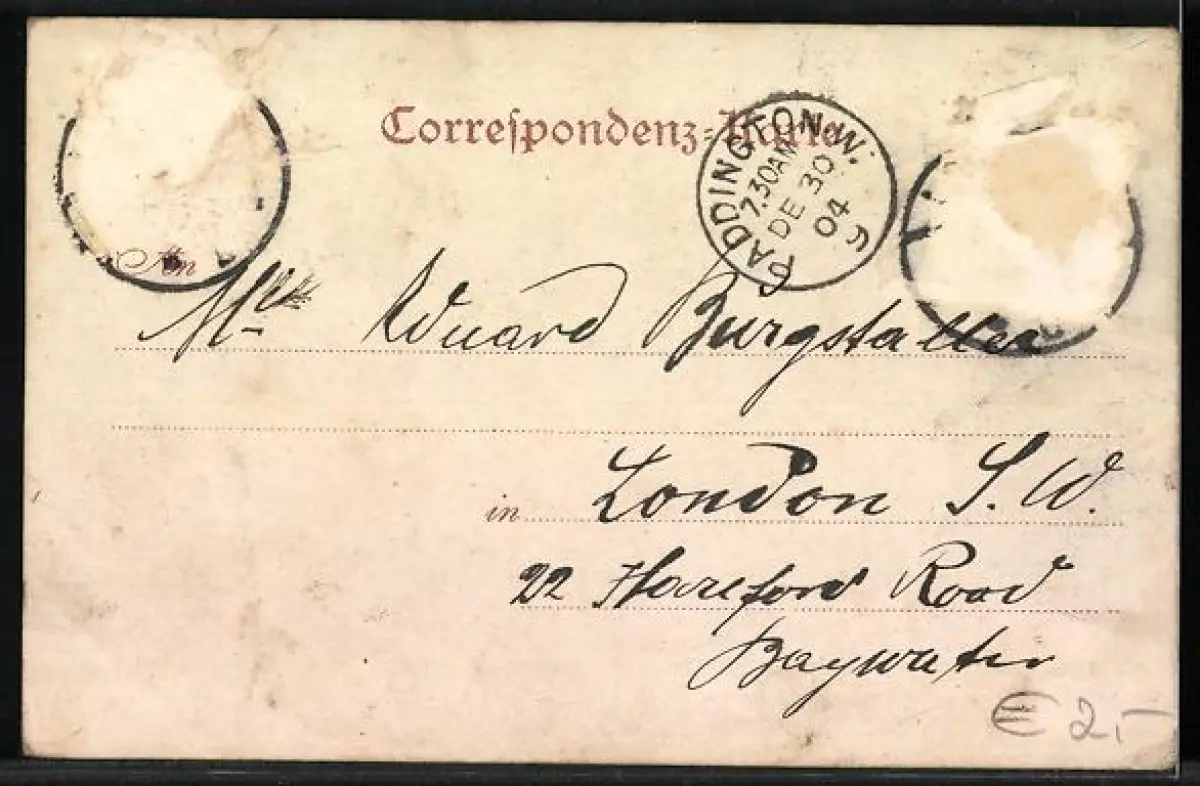 Correspondenz-Karte
PADDINGTON.W.
7.30AM
DE 30
04
9
An
Eduard Burgstaller
in London S.W.
22 Hereford Road
Baywater
€ 2,-